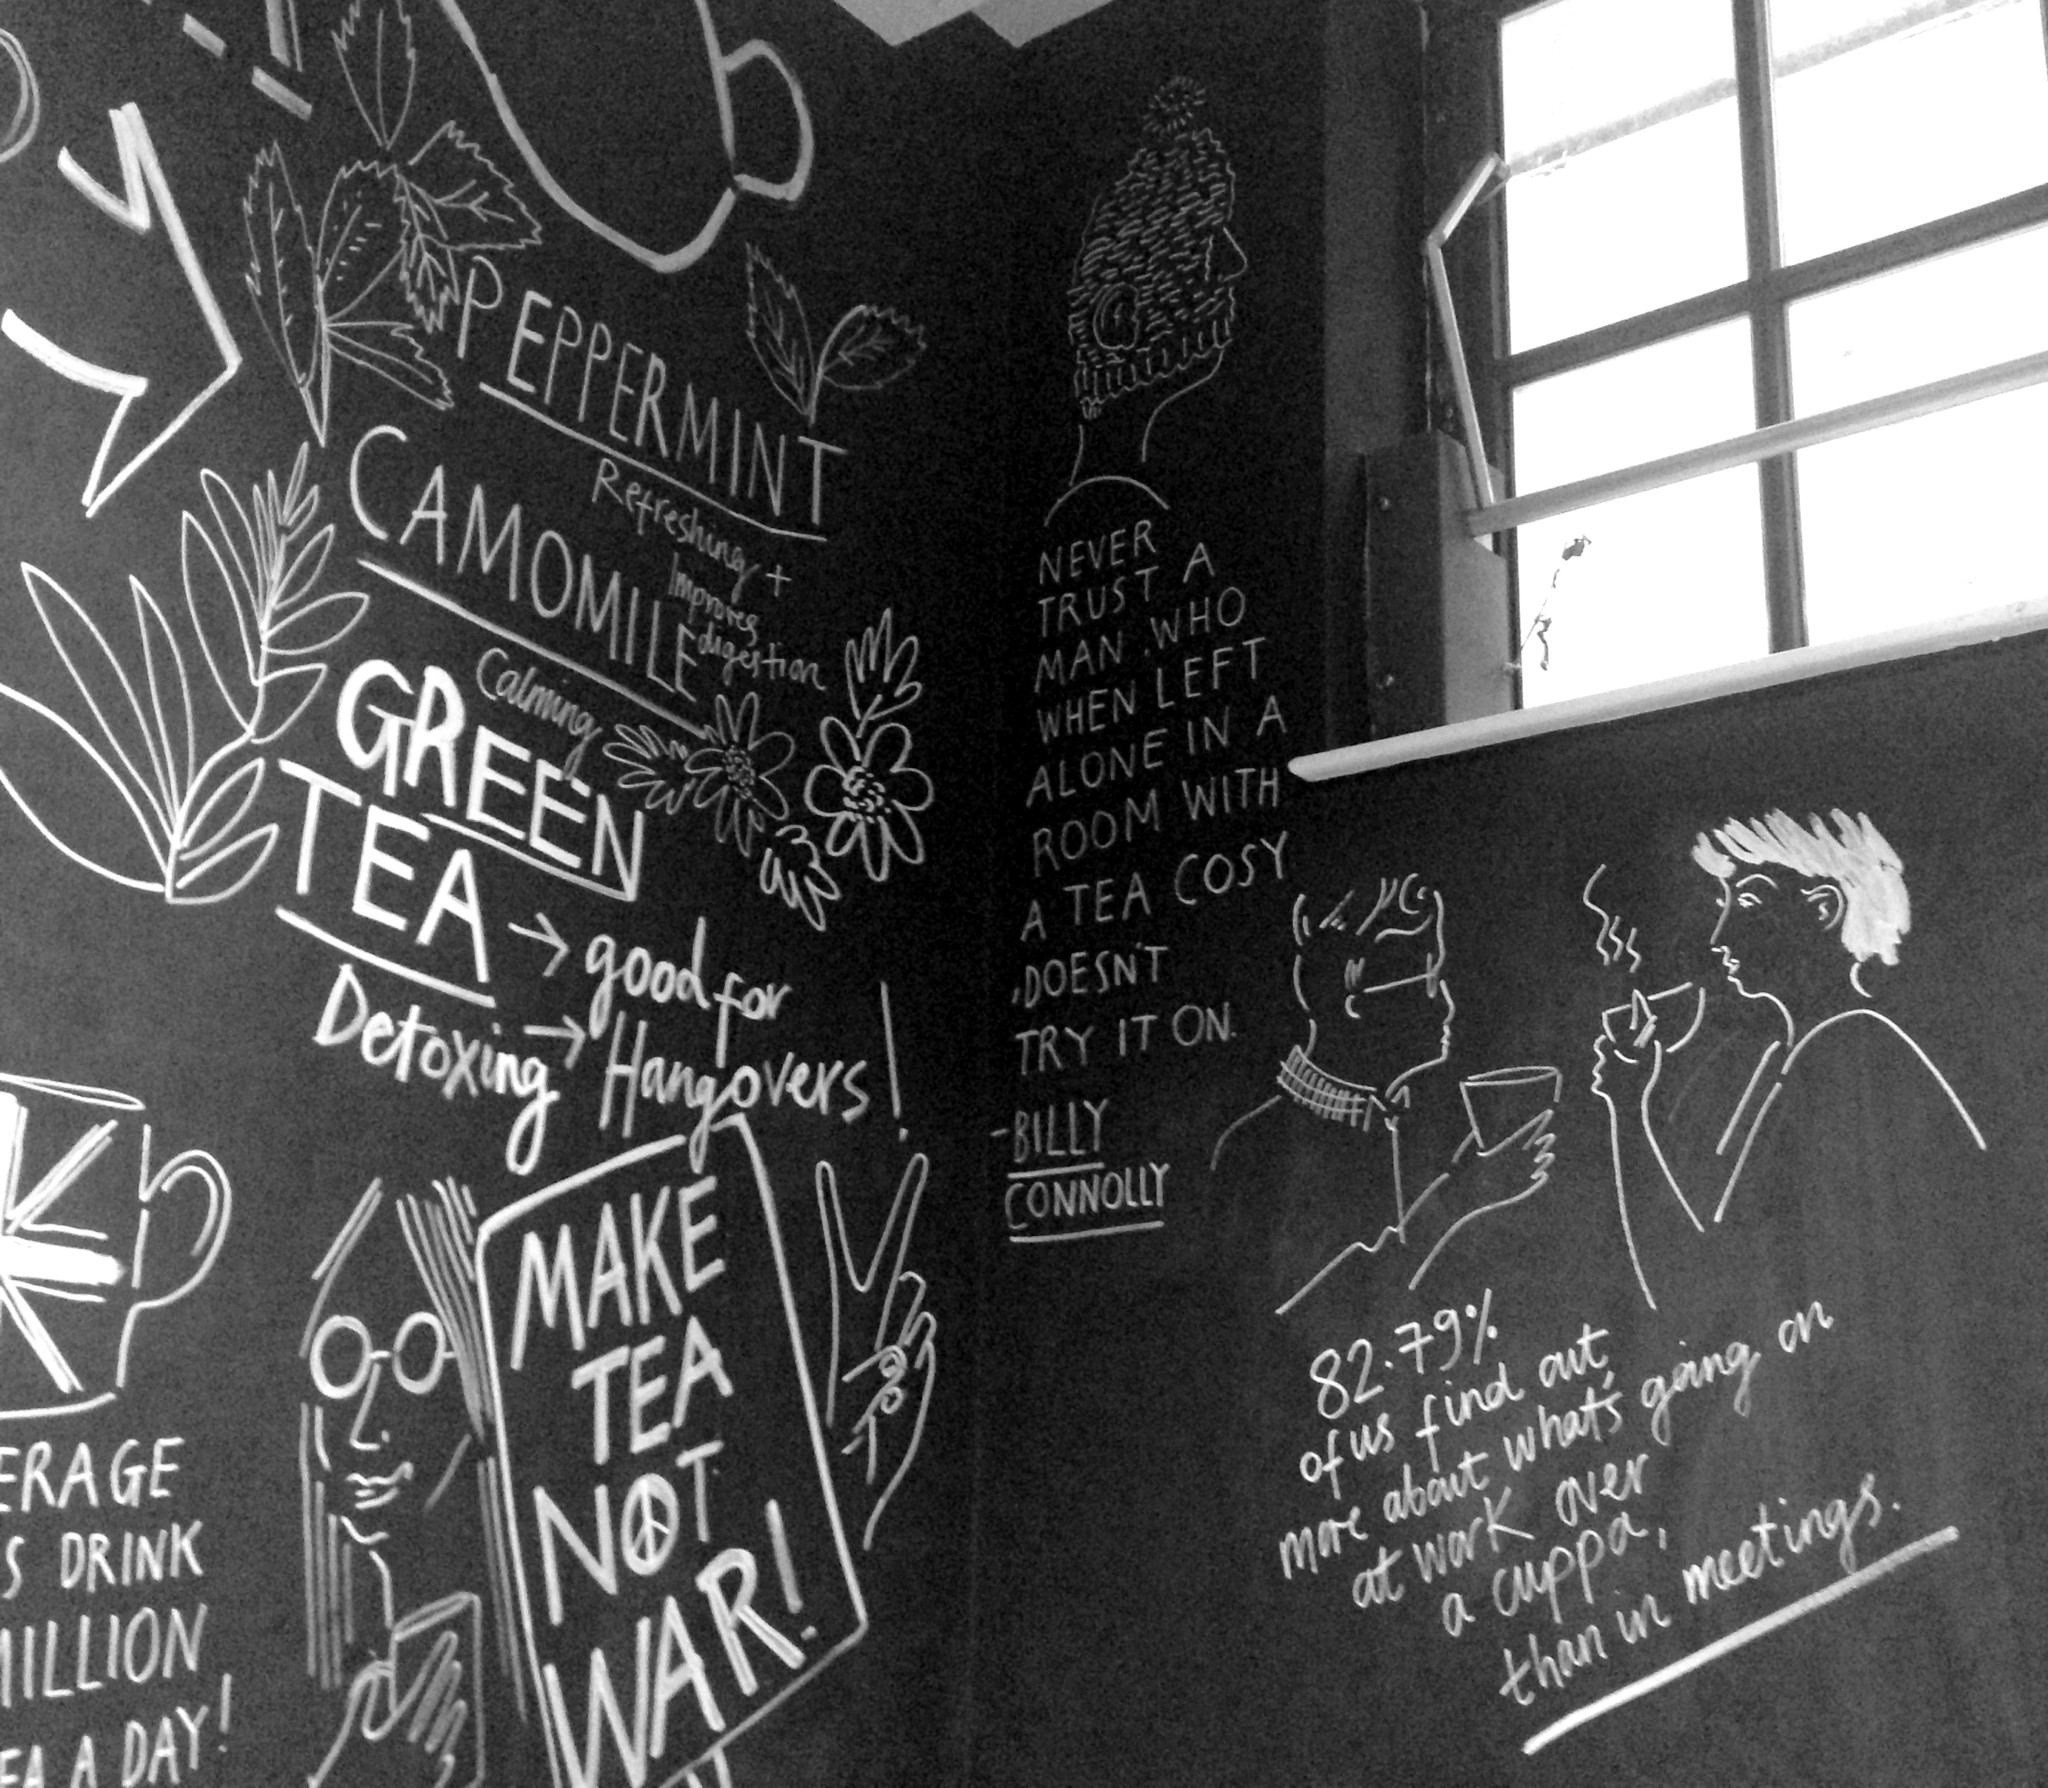 PEPPERMINT
Refreshing +
Improves
digestion
CAMOMILE
Calming
GREEN
TEA → good for
Detoxing → Hangovers!
MAKE
TEA
NOT
WAR!
DRINK
A DAY!
NEVER
TRUST A
MAN WHO
WHEN LEFT
ALONE IN A
ROOM WITH
A TEA COSY
DOESN'T
TRY IT ON.
-BILLY
CONNOLLY
82.79%
of us find out
more about what's going on
at work over
a cuppa,
than in meetings.